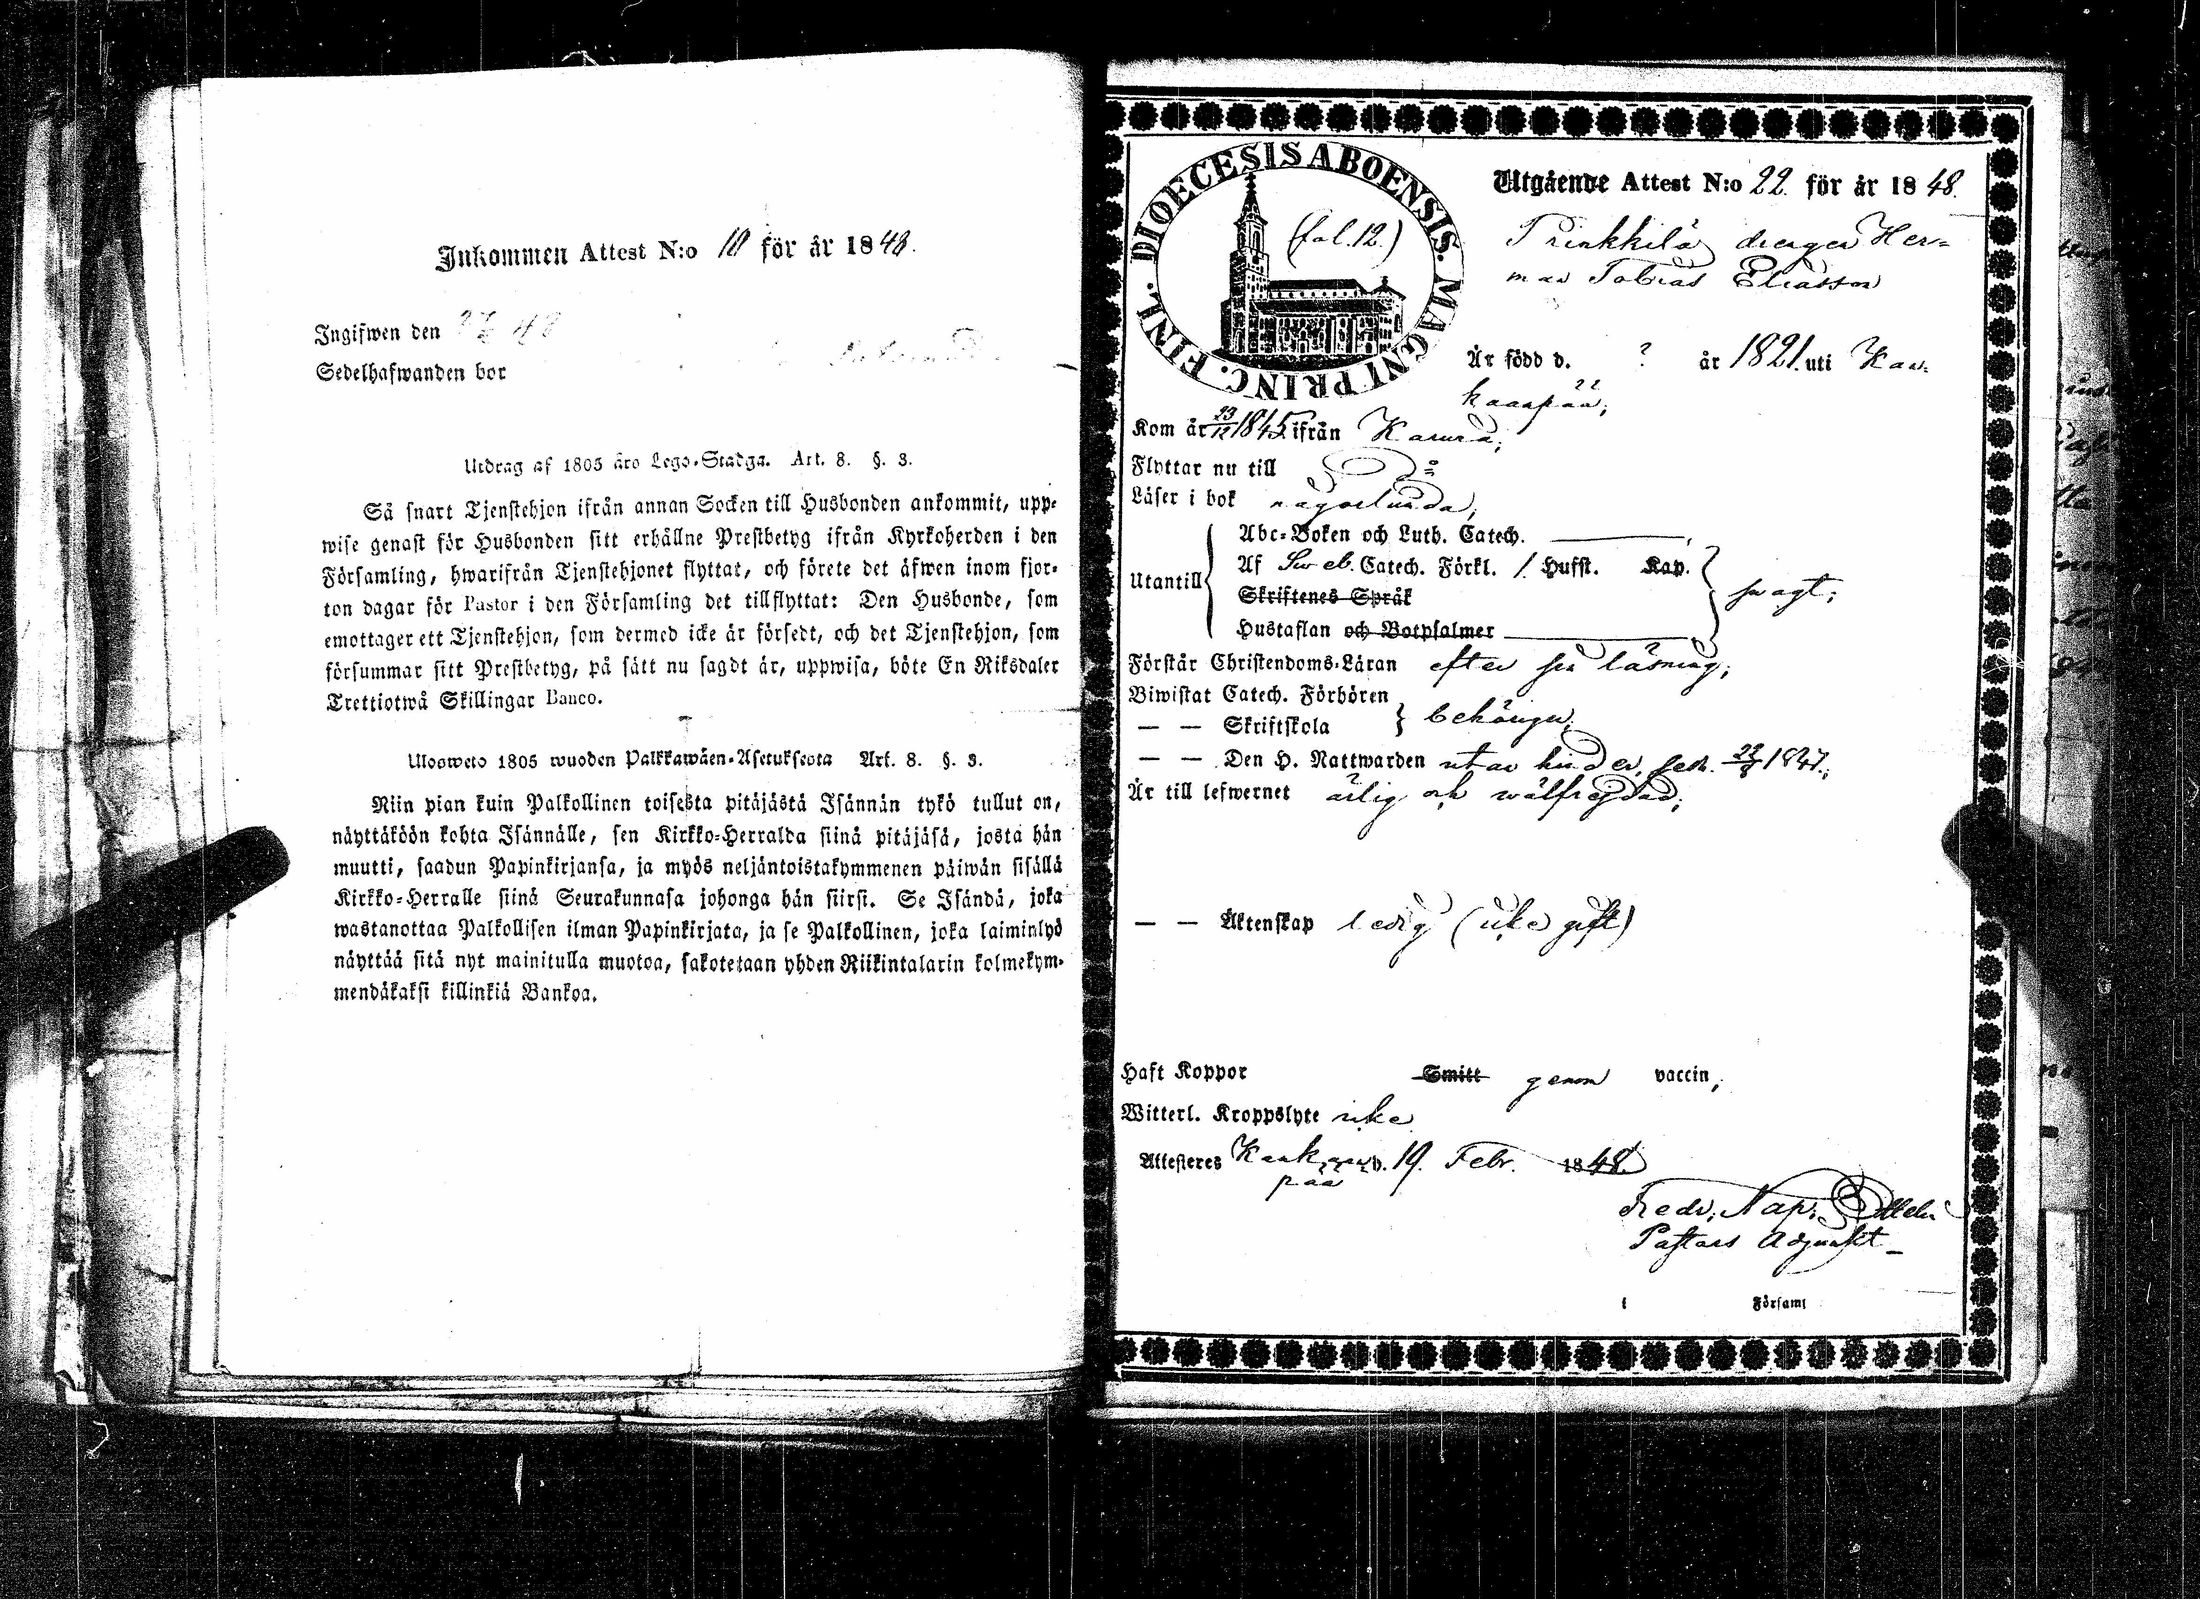 Inkommen Attest N:o 10 för år 1848.
Ingifwen den
Sedelhafwanden bor
Utdrag af 1805 års Lego-Stadga. Art. 8. §. 3.
Så snart Tjenstehjon ifrån annan Socken till Husbonden ankommit, upp-
wise genast för Husbonden sitt erhållne Prestbetyg ifrån Kyrkoherden i den
Församling, hwarifrån Tjenstehjonet flyttat, och förete det äfwen inom fjor-
ton dagar för Pastor i den Församling det tillflyttat: Den Husbonde, som
emottager ett Tjenstehjon, som dermed icke är försedt, och det Tjenstehjon, som
försummar sitt Prestbetyg, på sätt nu sagdt är, uppwisa, böte En Riksdaler
Trettiotwå Skillingar Banco.
Ulosweto 1805 wuoden Palkkawäen-Asetuksesta Art. 8. §. 3.
Niin pian kuin Palkollinen toisesta pitäjästä Isännän tykö tullut on,
näyttäköön kohta Isännälle, sen Kirkko-Herralda siinä pitäjäsä, josta hän
muutti, saadun Papinkirjansa, ja myös neljäntoistakymmenen päiwän sisällä
Kirkko-Herralle siinä Seurakunnasa johonga hän siirsi. Se Isändä, joka
wastanottaa Palkollisen ilman Papinkirjata, ja se Palkollinen, joka laiminlyö
näyttää sitä nyt mainitulla muotoa, sakotetaan yhden Riikintalarin kolmekym-
mendäkaksi killinkiä Bankoa.
DIOECESIS ABOENSIS. MAGNI PRINC. FINL.
(fol. 12.)
Utgående Attest N:o 22. för år 1848.
drengen Her-
man Tobias Eliasson
Är född d. ? år 1821. uti Kan-
kaanpää;
Kom år 23/12 1845 ifrån Karvia;
Flyttar nu till
Läser i bok någorlunda;
Utantill
Abc-Boken och Luth. Catech.
Af Sweb. Catech. Förkl. 1. Hufst. Kap.
Skriftenes Språk
Hustaflan och Botpsalmer
swagt;
Förstår Christendoms-Läran efter sin läsning;
Biwistat Catech. Förhören
— — Skriftskola
behörigen;
— — Den H. Nattwarden utan hinder, sedn. 1847.;
Är till lefwernet ärlig och wälfrejdad;
— — Äktenskap ledig (icke gift)
Haft Koppor Smitt genom vaccin;
Witterl. Kroppslyte icke
Attesteres Kankaan- d. 19. Febr. 1848.
pää
Fredr. Nap.
Pastors Adjunkt
i Församl